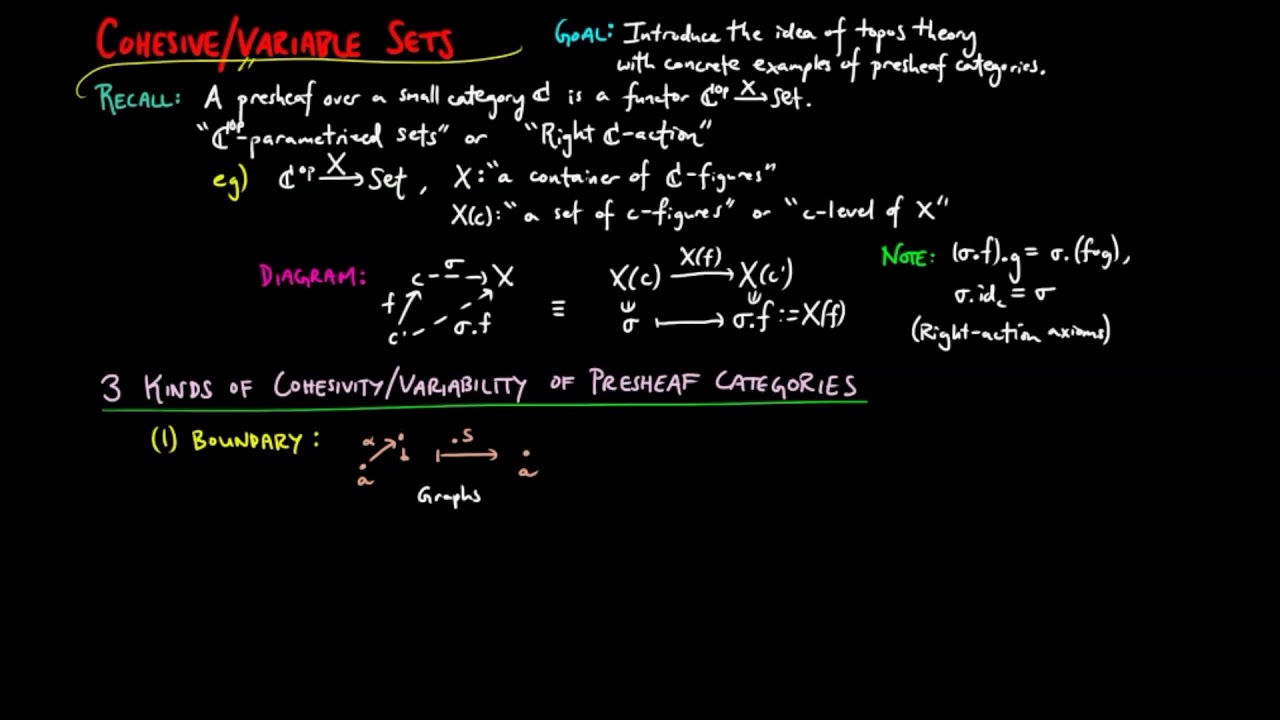 COHESIVE/VARIABLE SETS
GOAL: Introduce the idea of topos theory
with concrete examples of presheaf categories.
RECALL: A presheaf over a small category ℂ is a functor ℂᵒᵖ —X→ Set.
"ℂᵒᵖ-parametrized sets" or "Right ℂ-action"
eg) ℂᵒᵖ —X→ Set, X: "a container of ℂ-figures"
X(c): "a set of c-figures" or "c-level of X"
NOTE: (σ.f).g = σ.(f∘g),
σ.id_c = σ
(Right-action axioms)
DIAGRAM: c - σ → X
f
c' σ.f
≡
X(c) —X(f)→ X(c')
σ ⟼ σ.f := X(f)
3 KINDS OF COHESIVITY/VARIABILITY OF PRESHEAF CATEGORIES
(1) BOUNDARY: a α b ⟼ .s a
Graphs